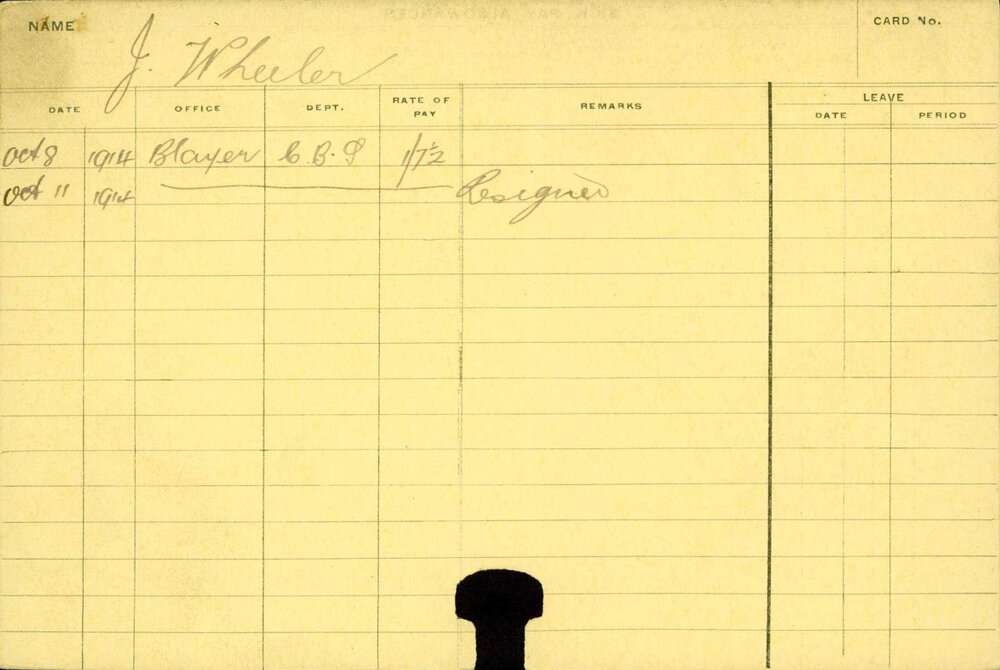 NAME J. Wheeler CARD No.
DATE OFFICE DEPT. RATE OF PAY REMARKS LEAVE
DATE PERIOD
Oct 8 1914 Blayer C.B.S 1/7½
Oct 11 1914 Resigned